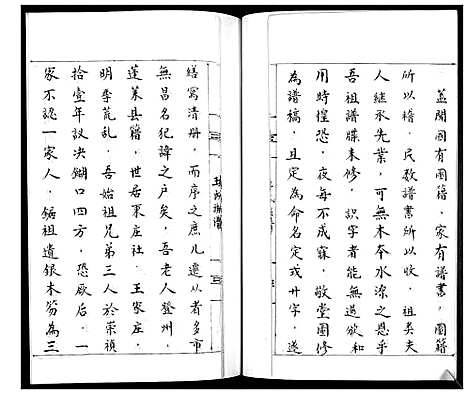 盖闻國有图籍，家有譜書，國籍
所以稽，民数譜書所以收，祖矣夫
人继承先業，可無本木水源之思乎
吾祖譜牒未修，识字者能無遏欲和
用時惶恐，夜每不成寐，敬堂圖修
為譜稿，且定為命名定或廿字，遂
缮寫清册，而序之庶几遵以者多市
無昌名犯諱之户矣，吾老人登州，
蓬莱县籍，世居栾庄社、王家庄，
明季荒乱，吾始祖兄第三人於崇禎
拾壹年议决餬口四方，恐厥后，一
家不認一家人，鋸祖遗银木笏為三